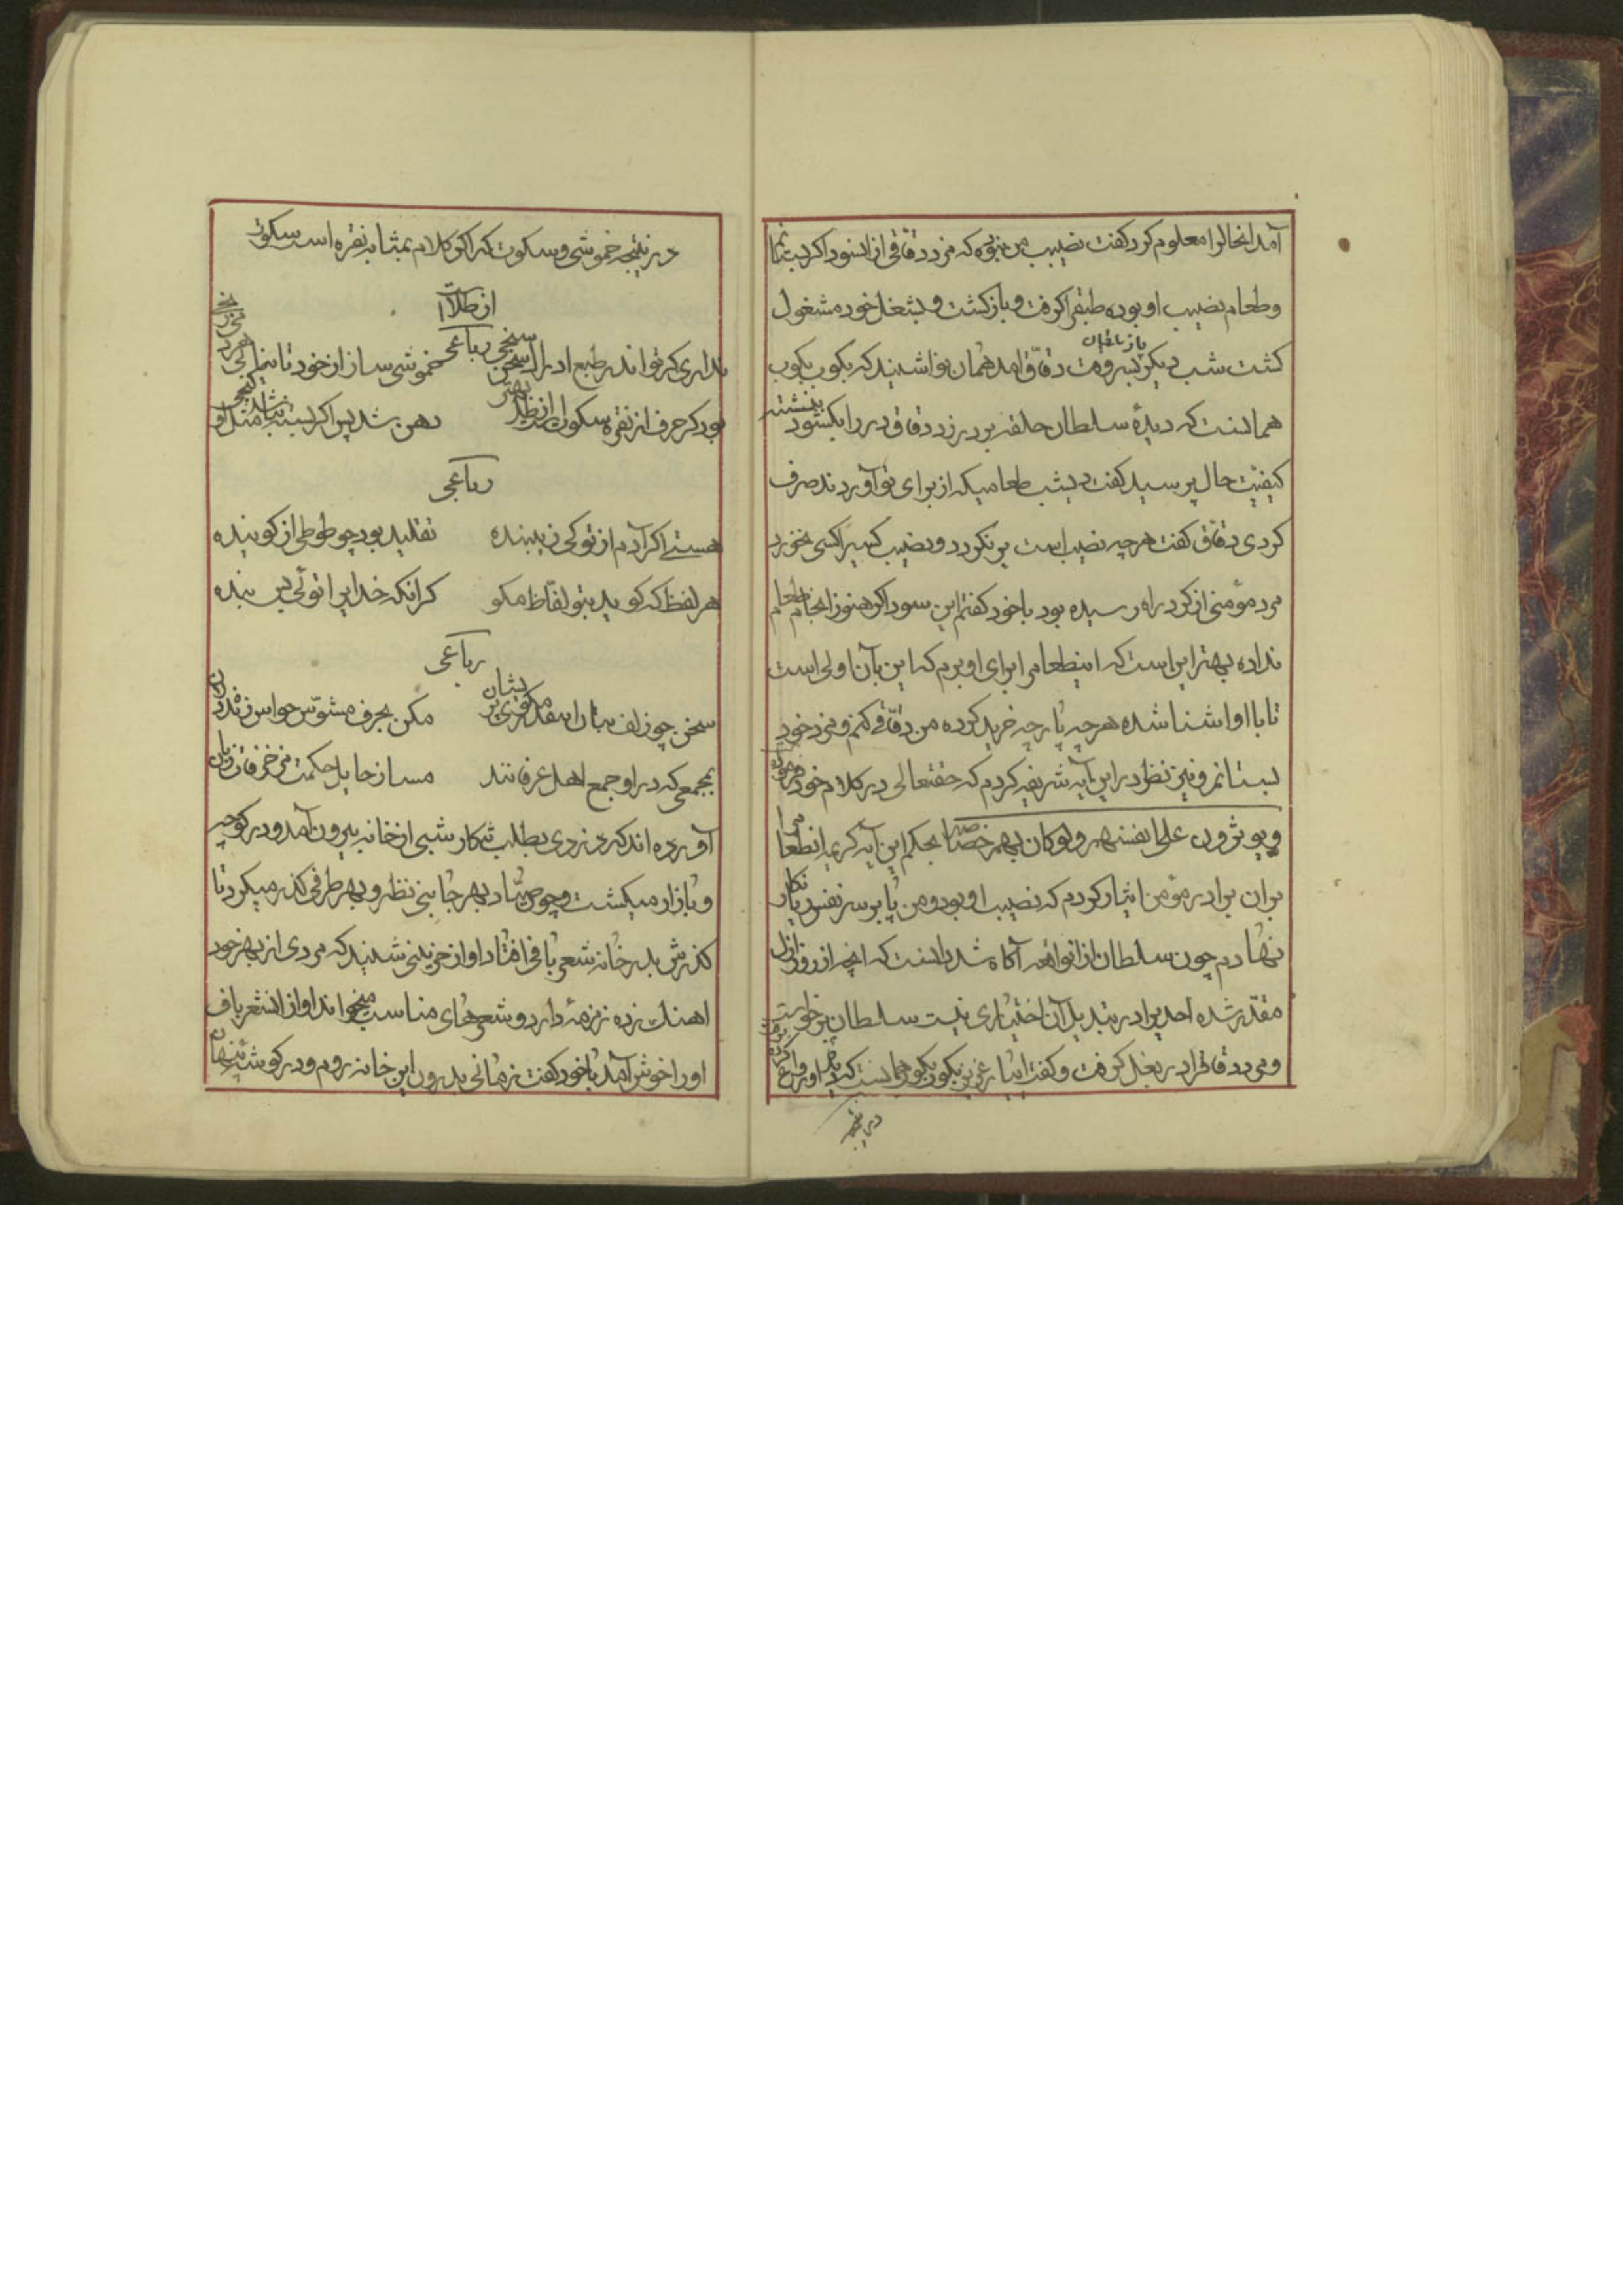 آمد انحالرا معلوم کرد کفت نصیب من نبوده که مزد دقاقی از انسودا کردیست
و طعام نصیب او بوده طبقرا کرفت و باز کشت و بشغل خود مشغول
کشت شب دیکر بسر وقت دقاق امد همان نوا شنید که بکوب بکوب
هما نست که دیدهٔ سلطان حلقه بر در زد دقاق در را بکشود بنشسته
کیفیت حال پرسید کفت دیشب طعامیکه از برای تو آوردند صرف
کردی دقاق کفت هرچه نصیب است بر نکردد و نصیب کسیرا کسی نخورد
مرد مؤمنی از کرد راه رسیده بود با خود کفتم این سودا کر هنوز انجام طعام
نداده بهتر این است که اینطعام را برای او برم که این بآن اولی است
تا با او اشنا شده هرچه پارچه خرید کرده من دقاقی کنم و مزد خود
بستانم و نیز نظر در این آیه شریفه کردم که حقتعالی در کلام خود فرموده
و یوثرون علی انفسهم ولو کان بهم خصاصه بحکم این آیه کریمه انطعام را
بران برادر مؤمن ایثار کردم که نصیب او بود و من پا بر سر نفس
نهادم چون سلطان از انواقعه آکاه شد دانست که انچه از روز ازل
مقدر شده احدیرا در تبدیل آن اختیاری نیست سلطان بر خواست
و مرد دقاقرا در بغل کرفت و کفت ایا عزیز بکوب بکوب همانست که
در نتیجه
در نتیجه خموشی و سکوت که اکر کلام بمثابه نقره است سکوت
از طلاست
رباعی
نداری کر تو اندر طبع ادراک سخن سنجی خموشی ساز از خود تا نیابی
بود کر حرف از نقره سکوت از طلا بهتر دهن شد پس اکر بسته نباشد مثل او کنجی
رباعی
هستی اکر آدم از تو کی زیبنده تقلید بود چو طوطی از کوینده
هر لفظ که کوید بتو لفاظ مکو کر انکه خدایرا توئی پس بنده
رباعی
سخن چو زلف بتان اسقدر مکن بحرف مشوش حواس
بجمعی که در او جمع اهل عرفانند مساز حایل حکمت مزخرفات زبان
آورده اند که دزدی بطلب شکار شبی از خانه بیرون آمد و در کوچه
و بازار میکشت و چون صیاد بهر جانبی نظر و بهر طرفی کذر میکرد تا
کذرش بدر خانه شعر بافی افتاد اواز حزینی شنید که مردی از بهر خود
اهنک زده زمزمهٔ دارد و شعرهای مناسب میخواند اواز انشعرباف
اورا خوش آمد با خود کفت زمانی بدرون این خانه روم و در کوشه پنهان